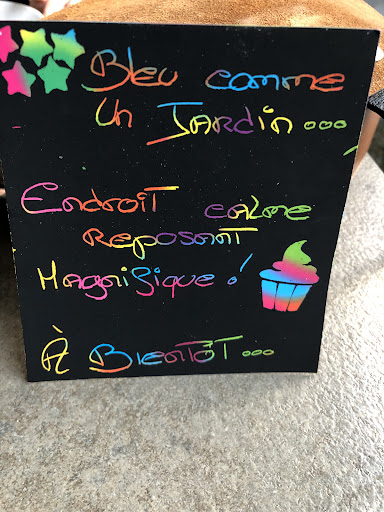 Bleu comme
un Jardin...
Endroit calme
reposant
Magnifique !
À Bientôt...